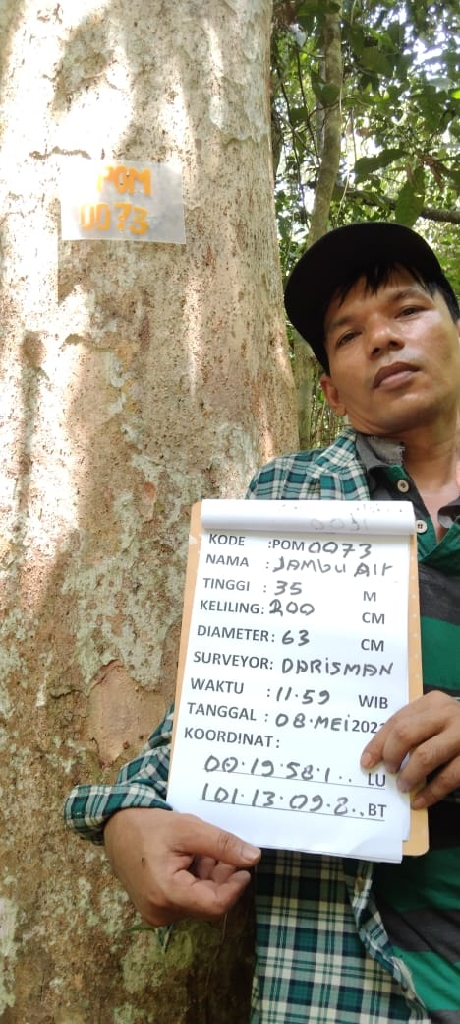 POM
0073
KODE :POM0073
NAMA :JAMBU AIr
TINGGI : 35 M
KELILING: 200 CM
DIAMETER: 63 CM
SURVEYOR: DARISMAN
WAKTU : 11.59 WIB
TANGGAL : 08.MEI
KOORDINAT :
00.19.58.1.. LU
101.13.09.2..BT